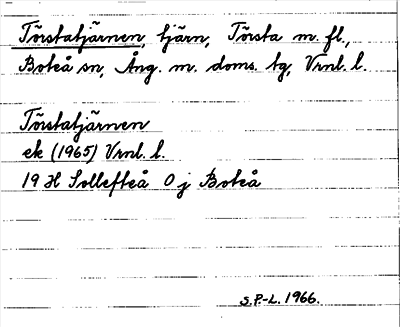 Törstatjärnen, tjärn, Törsta m. fl.,
Boteå sn, Ång. m. doms. tg, Vrnl. l.
Törstatjärnen
ek (1965) Vrnl. l.
19 H Sollefteå 0 j Boteå
S.P-L. 1966.